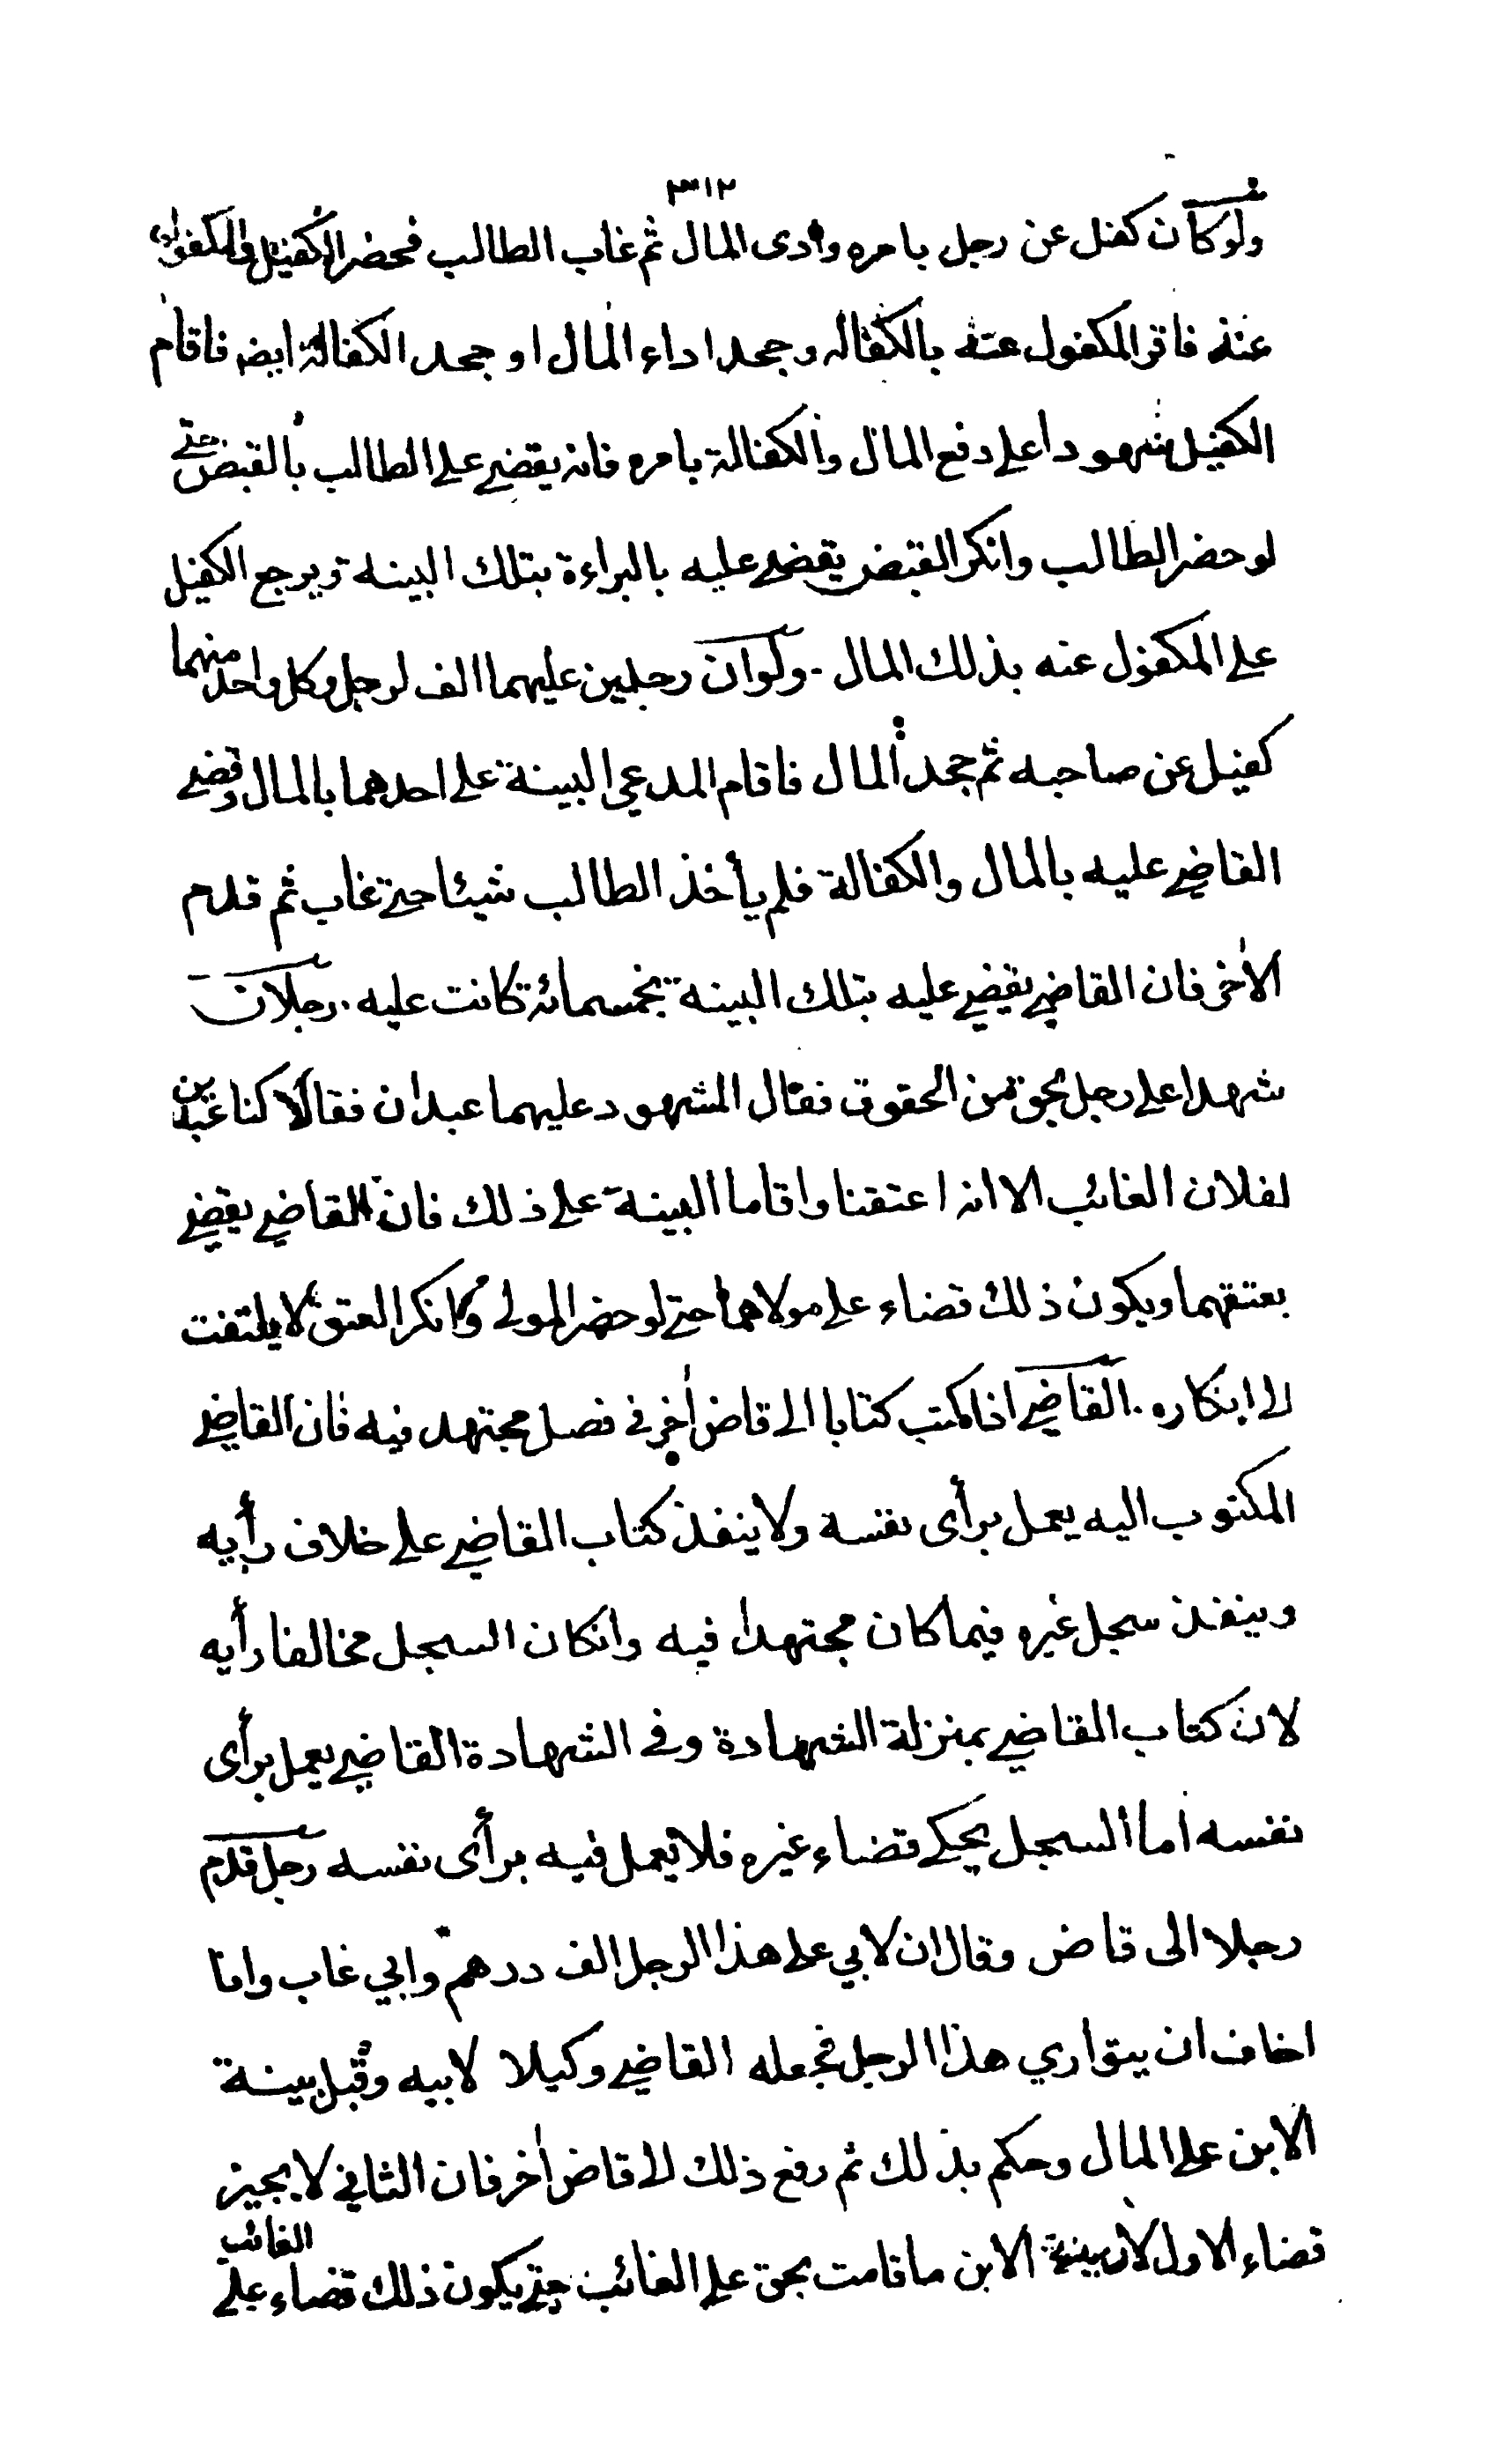 ٣١٢
ولو كان كفل عن رجل بامره وادى المال ثم غاب الطالب فحضر الكفيل والمكفول
عنه فاقر المكفول عنه بالكفاله وجحد اداء المال او جحد الكفالة ايضا فاقام
الكفيل شهودا على دفع المال والكفالة بامره فانه يقضي على الطالب بالقبض حتى
لو حضر الطالب وانكر القبض يقضى عليه بالبراءة بتلك البينة ويرجع الكفيل
على المكفول عنه بذلك المال . ولو ان رجلين عليهما الف لرجل وكل واحد منهما
كفيل عن صاحبه ثم جحد المال فاقام المدعي البينة على احدهما بالمال وقضى
القاضي عليه بالمال والكفالة فلم يأخذ الطالب شيئا حتى غاب ثم قدم
الاخر فان القاضي يقضي عليه بتلك البينة بخمسمائة كانت عليه . رجلان
شهدا على رجل بحق من الحقوق فقال المشهود عليهما عبدان فقالا كنا عبدين
لفلان الغائب الا انه اعتقنا واقاما البينة على ذلك فان القاضي يقضي
بعتقهما ويكون ذلك قضاء على مولاهما حتى لو حضر المولى وانكر العتق لا يلتفت
الى انكاره . القاضي اذا كتب كتابا الى قاض اخر في فصل مجتهد فيه فان القاضي
المكتوب اليه يعمل برأى نفسه ولا ينفذ كتاب القاضي على خلاف رأيه
وينفذ سجل غيره فيما كان مجتهدا فيه وانكان السجل مخالفا رأيه
لان كتاب القاضي بمنزلة الشهادة وفي الشهادة القاضي يعمل برأى
نفسه اما السجل يحكي قضاء غيره فلا يعمل فيه برأى نفسه رجل قدم
رجلا الى قاض وقال ان لابي على هذا الرجل الف درهم وابي غاب وانا
اخاف ان يتواري هذا الرجل فجعله القاضي وكيلا لابيه وقبل بينة
الابن على المال وحكم بذلك ثم رفع ذلك الى قاض اخر فان الثاني لا يجيز
قضاء الاول لان بينة الابن ما قامت بحق على الغائب حتى يكون ذلك قضاء على الغائب